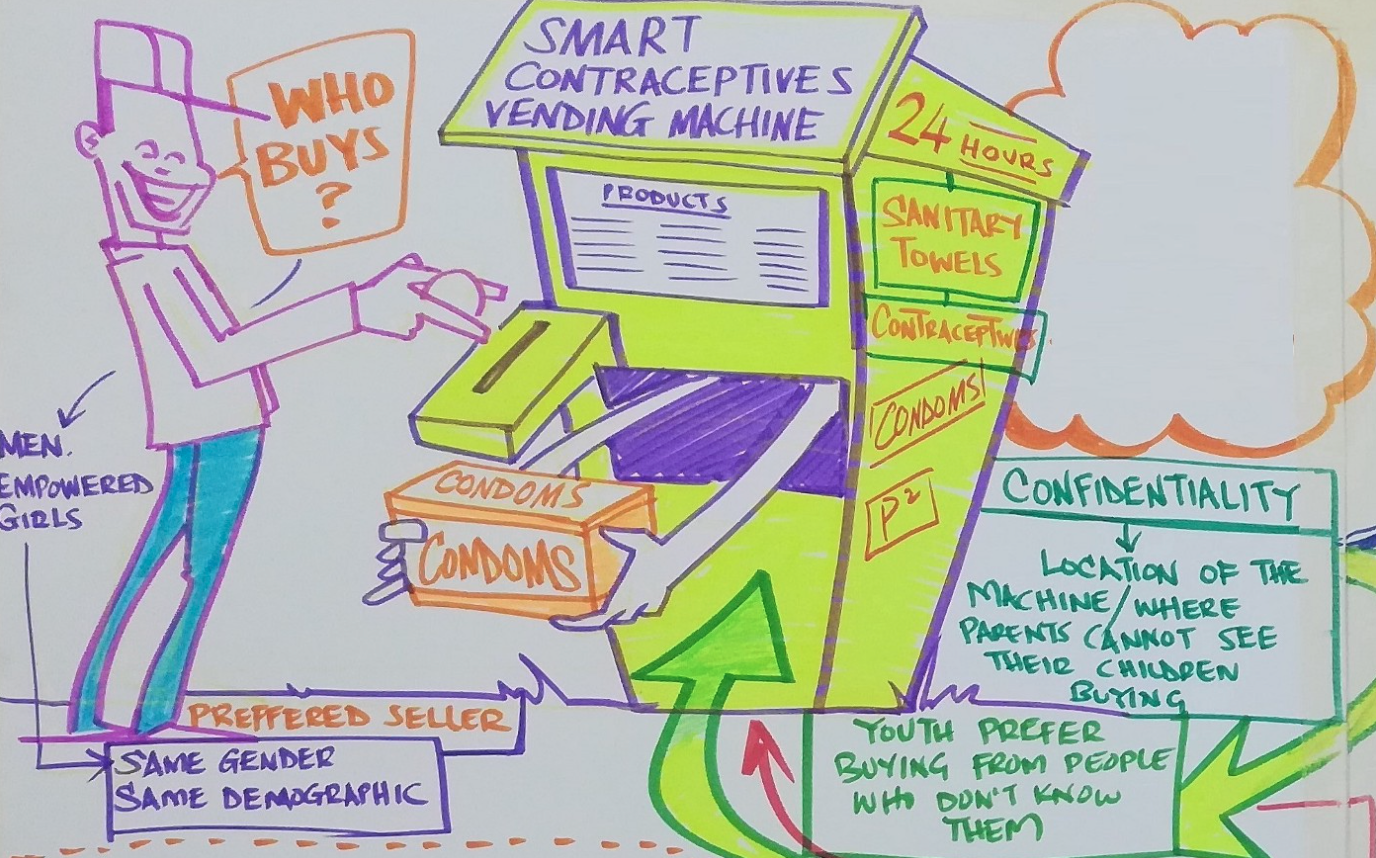 WHO
BUYS
?
SMART
CONTRACEPTIVES
VENDING MACHINE
24 HOURS
PRODUCTS
SANITARY
TOWELS
CONTRACEPTIVES
CONDOMS
P2
CONDOMS
CONDOMS
MEN.
EMPOWERED
GIRLS
PREFFERED SELLER
SAME GENDER
SAME DEMOGRAPHIC
CONFIDENTIALITY
LOCATION OF THE
MACHINE/WHERE
PARENTS CANNOT SEE
THEIR CHILDREN
BUYING
YOUTH PREFER
BUYING FROM PEOPLE
WHO DON'T KNOW
THEM